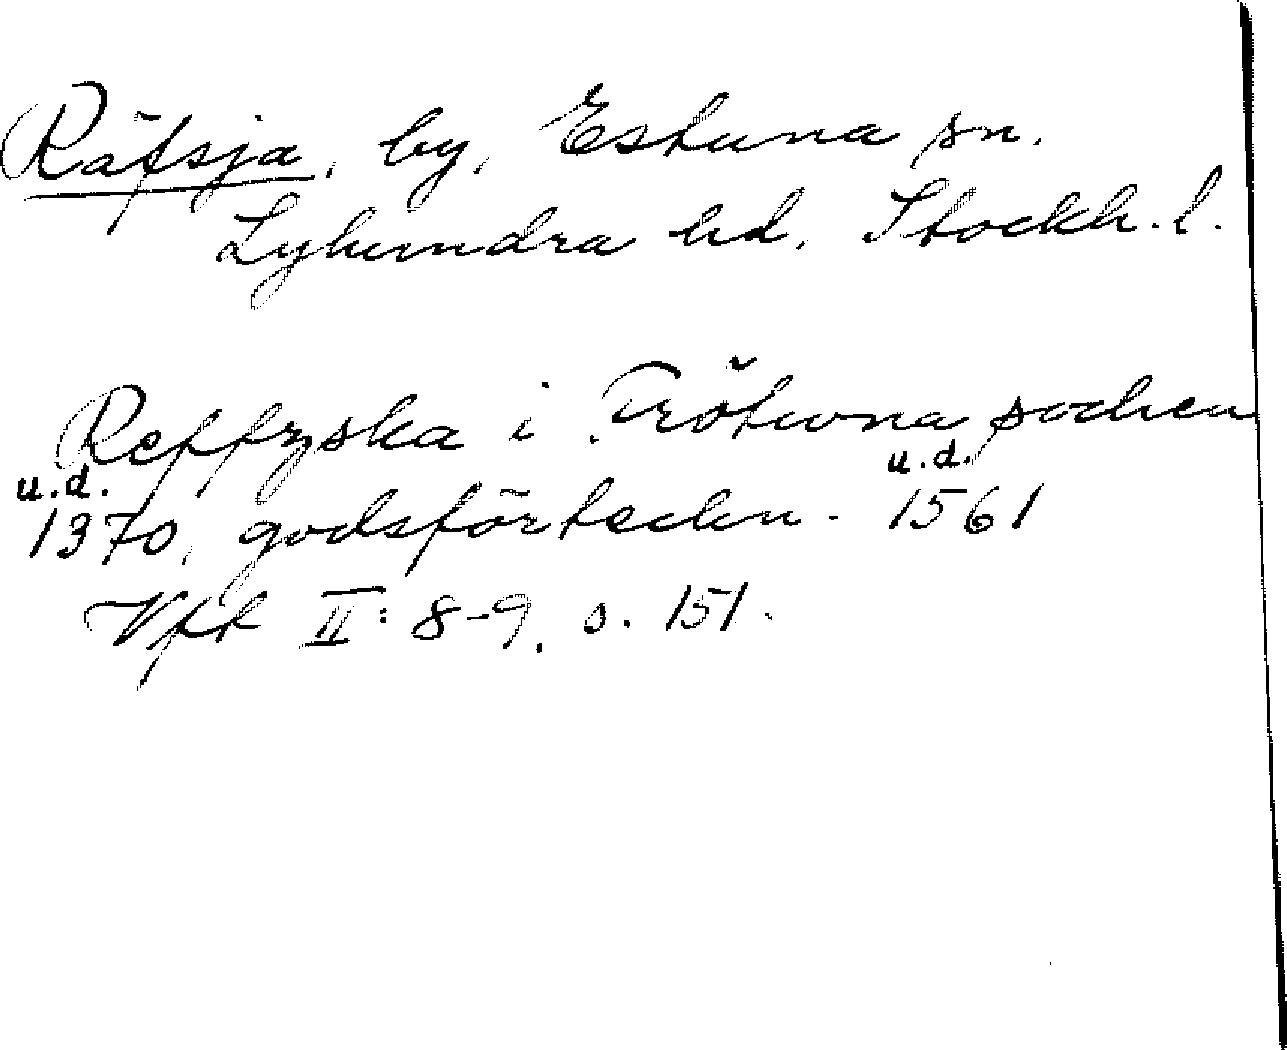 Räfsja, by, Estuna sn.
Lyhundra hd. Stockh. l.
Reffzska i Frötuna sochen
u.d. u.d.
1370, godsförteckn. 1561
Vft II: 8-9, s. 151.